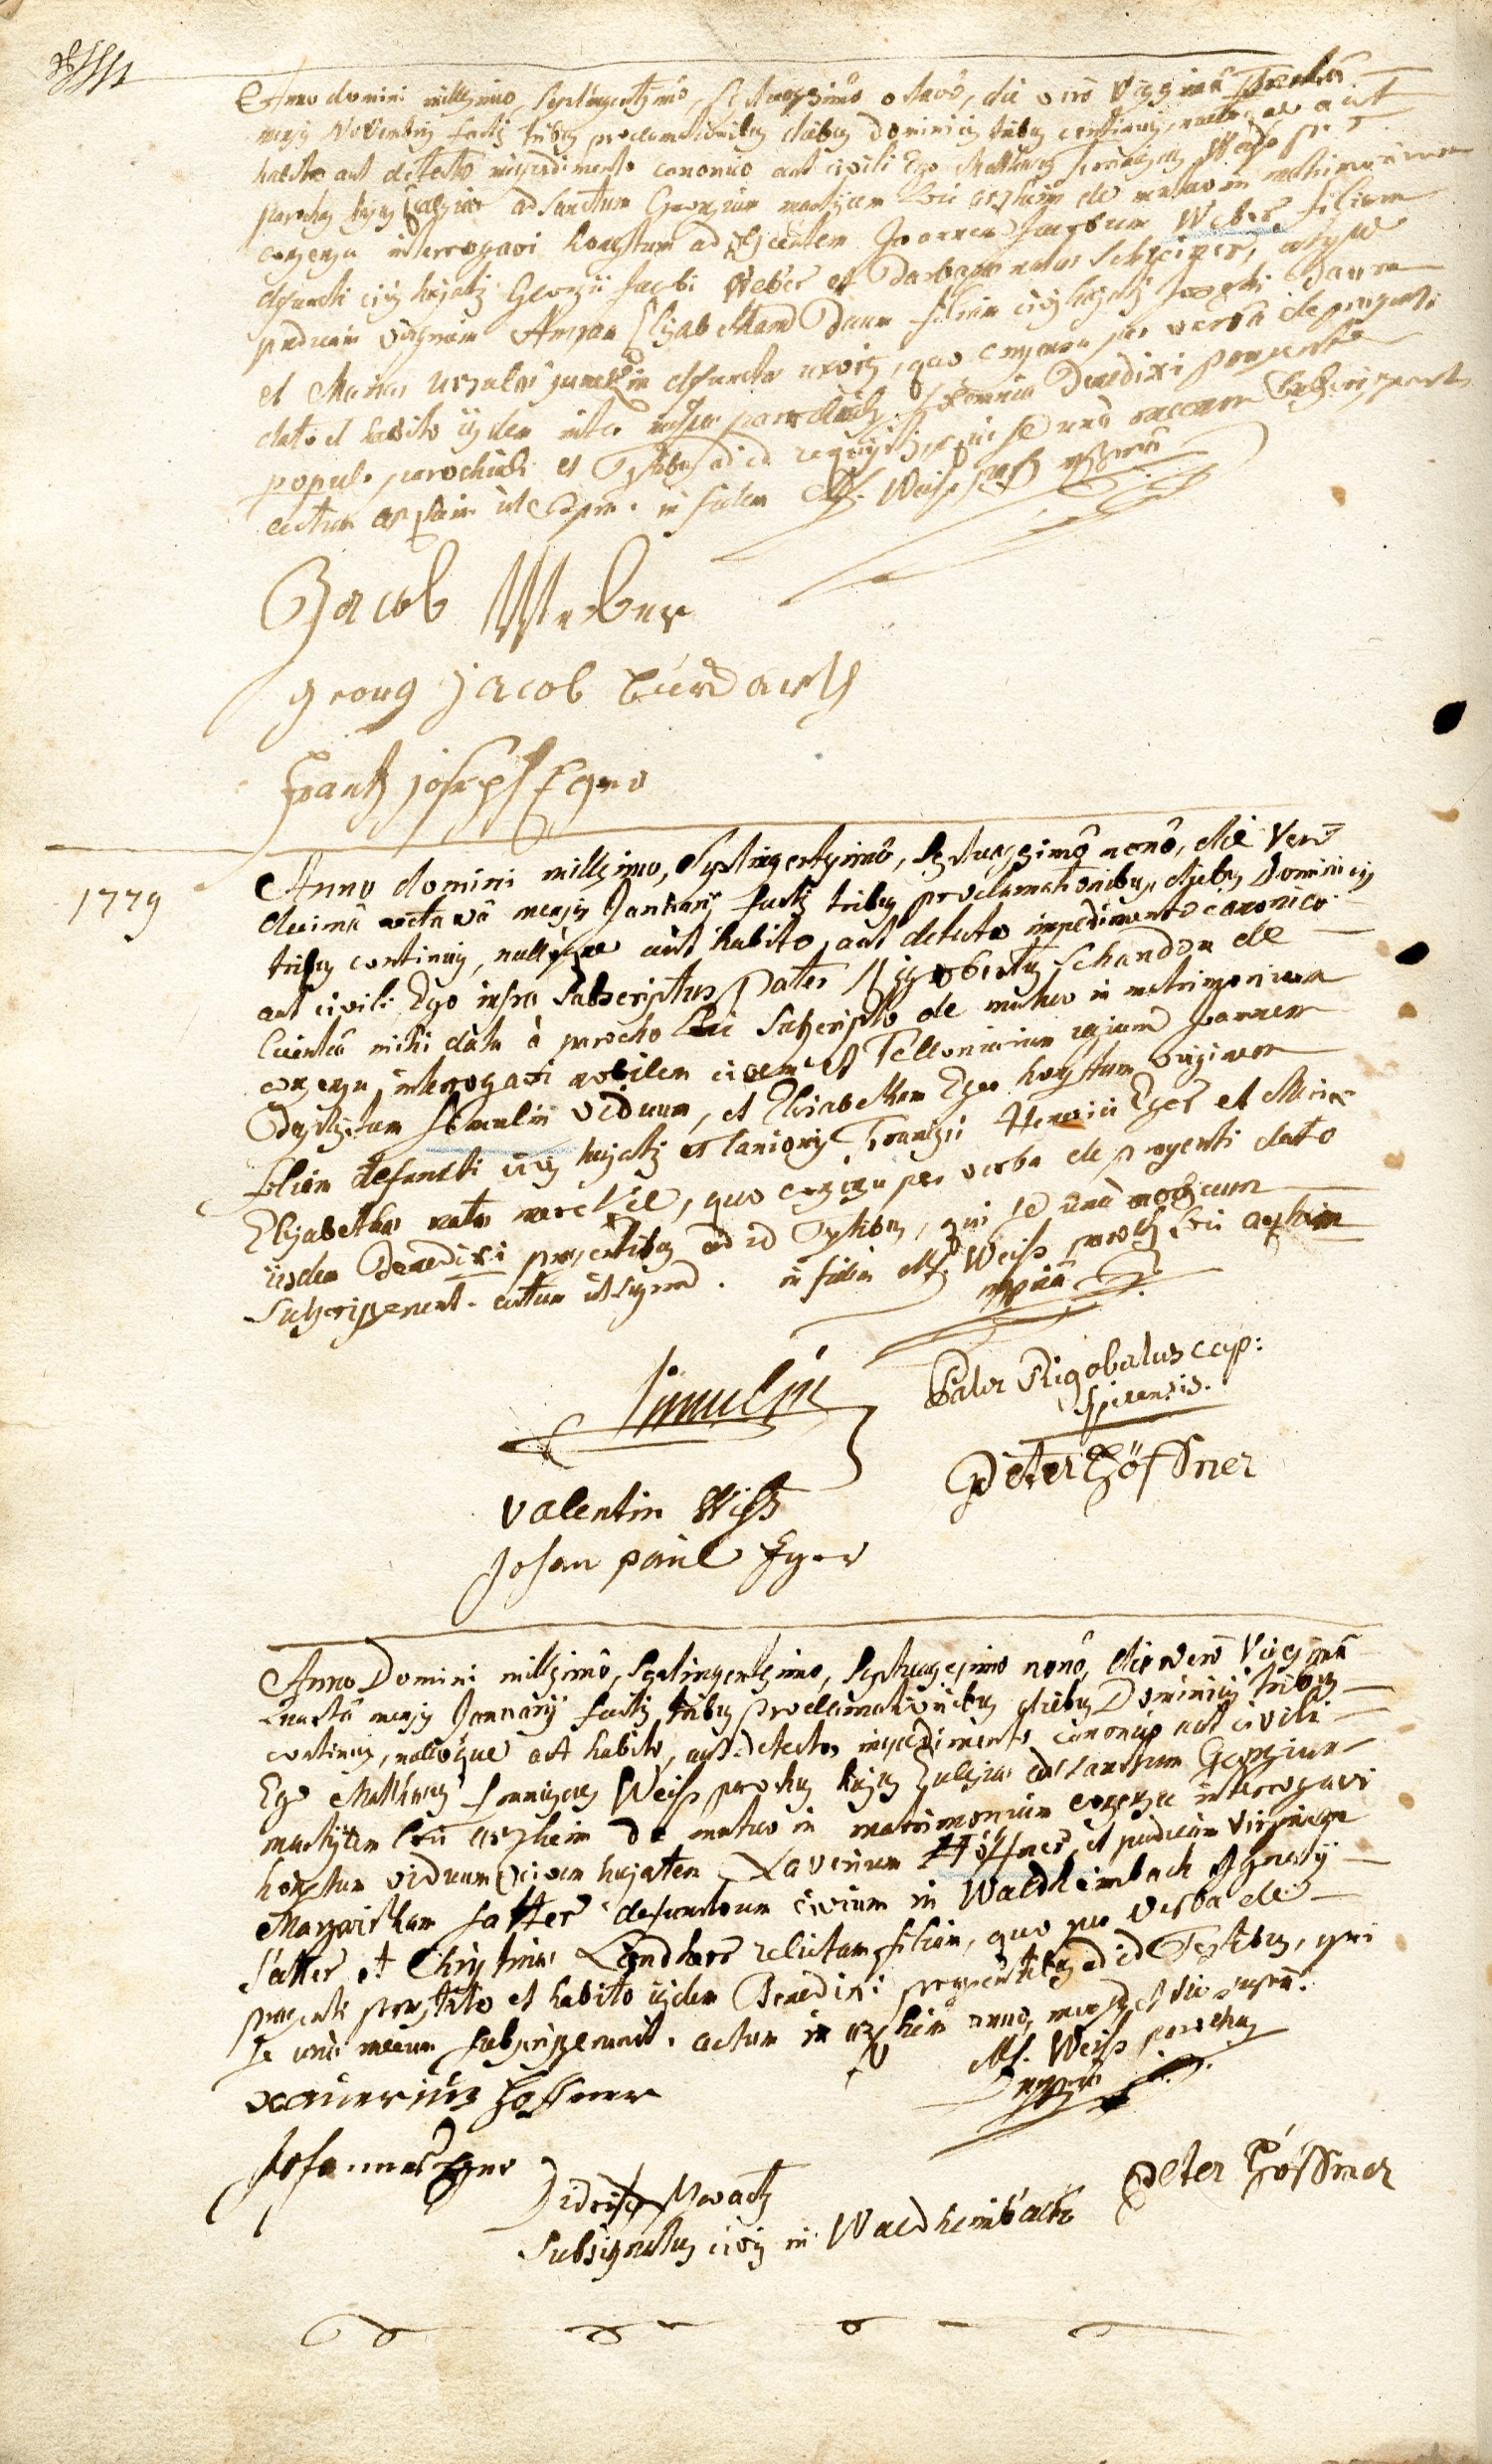 Anno domini millesimo, septingentesimo, septuagesimo octavo, die vero vigesima
mensis Novembris factis tribus proclamationibus diebus Dominicis tribus continuis, nulloque aut
habito aut detecto impedimento canonico aut civili Ego Matthaeus Franciscus Weiss p. t.
parochus hujus Ecclesiae ad Sanctum Georgium martyrem loci arzheim de mutuo in matrimonium
consensu interrogavi honestum adolescentem Joannem Jacobum Weber filium
defuncti civis hujatis Georgii Jacobi Weber et Barbarae natae, atque
pudicam virginem Annam Elisabetham Daum filiam civis hujatis Jacobi Daum
et Mariae Ursulae defunctae uxoris, quo consensu per verba de praesenti
dato et habito iisdem infra missam parochialem solemnia Benedixi praesente
populo parochiali et Testibus ad id requisitis, qui se una mecum subscripserunt
actum arzheim ut supra. in fidem M. F. Weiss parochus mppria
Jacob Weber
georg jacob
Frantz joseph Eger
1779
Anno domini millesimo, septingentesimo, septuagesimo nono, die vero
decima octava mensis Januarij factis tribus proclamationibus diebus Dominicis
tribus continuis, nulloque aut habito, aut detecto impedimento canonico
aut civili Ego infra subscriptus Pater Rigobertus Schandon de
licentia mihi data à parocho loci subscripto de mutuo in matrimonium
consensu, interrogavi nobilem civem et Tellonarium regium Joannem
Baptistam Simulin viduum, et Elisabetham Eger honestam virginem
filiam defuncti civis hujatis et lanionis Francisci Henrici Eger et Mariae
Elisabethae natae, quo consensu per verba de praesenti dato
iisdem Benedixi praesentibus ad id Testibus, qui se una mecum
subscripserunt. actum ut supra. in fidem M. F. Weiss parochus loci arzheim
mppria
Simulin
Pater Rigobertus cap:
spirensis.
valentin Wiss
Peter Höffner
Johan paul Eger
Anno Domini millesimo, septingentesimo, septuagesimo nono, die vero vigesima
quarta mensis Januarij factis tribus proclamationibus diebus Dominicis tribus
continuis, nulloque aut habito, aut detecto impedimento canonico aut civili
Ego Matthaeus Franciscus Weiss parochus hujus Ecclesiae ad Sanctum Georgium
martyrem loci arzheim de mutuo in matrimonium consensu interrogavi
honestum viduum civem hujatem Xaverium Höffner, et pudicam virginem
Margaritham Satter defunctorum civium in Waldheimbach Ignatij
Satter et Christinae relictam filiam, quo per verba de
praesenti praestito et habito iisdem Benedixi praesentibus ad id Testibus, qui
se una mecum subscripserunt. actum in arzheim anno, mense, et die supra.
M. F. Weiss parochus
mppria
xauerius Höffner
Johannes Eger
Peter Höffner
subsignatus civis in Waldheimbach